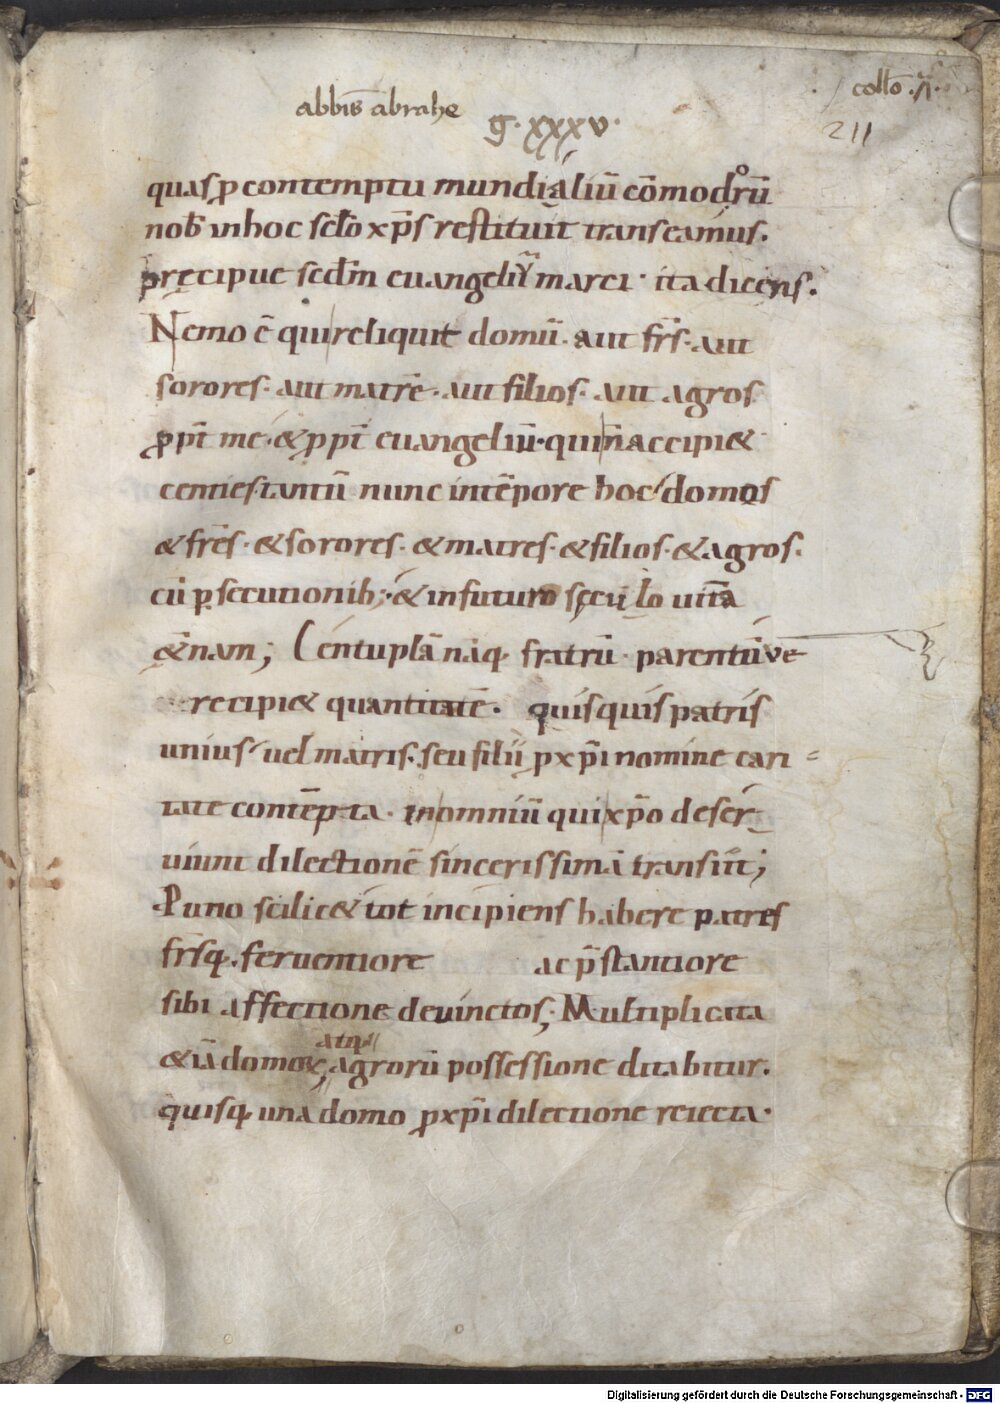 abbis̄ abrahe
collō
g. xxxv.
211
quas ꝓ contemptu mundialiū cōmodoꝛū
nob̄ in hoc sc̄lo xp̄s restituit transeamus.
precipue scd̄m euangeliū marci. ita dicens.
Nemo ē qui reliquit domū. aut fr̄s. aut
sorores. aut matrē. aut filios. aut agros
ꝓpt̄ me. & ꝓpt̄ euangeliū. qui n̄ accipi&
centies tantū nunc in tēpore hoc domos
& fr̄es. & sorores. & matres. & filios. & agros.
cū ꝑsecutionib; & in futuro seculo uitā
&̄nam; Centuplā naq; fratrū parentūve
recipi& quantitatē. quisquis patris
unius uel matris. seu filii ꝓ xp̄i nomine cari-
tate contēpta. in omniū qui xp̄o deser-
uiunt dilectionē sincerissimā transiit;
P uno scilic& tot incipiens habere patres
fr̄sq; feruentiore ac p̄stantiore
sibi affectione deuinctos; Multiplicata
atq;
&iā domos, agrorū possessione ditabitur.
quisq; una domo ꝓ xp̄i dilectione reiecta.
Digitalisierung gefördert durch die Deutsche Forschungsgemeinschaft - DFG